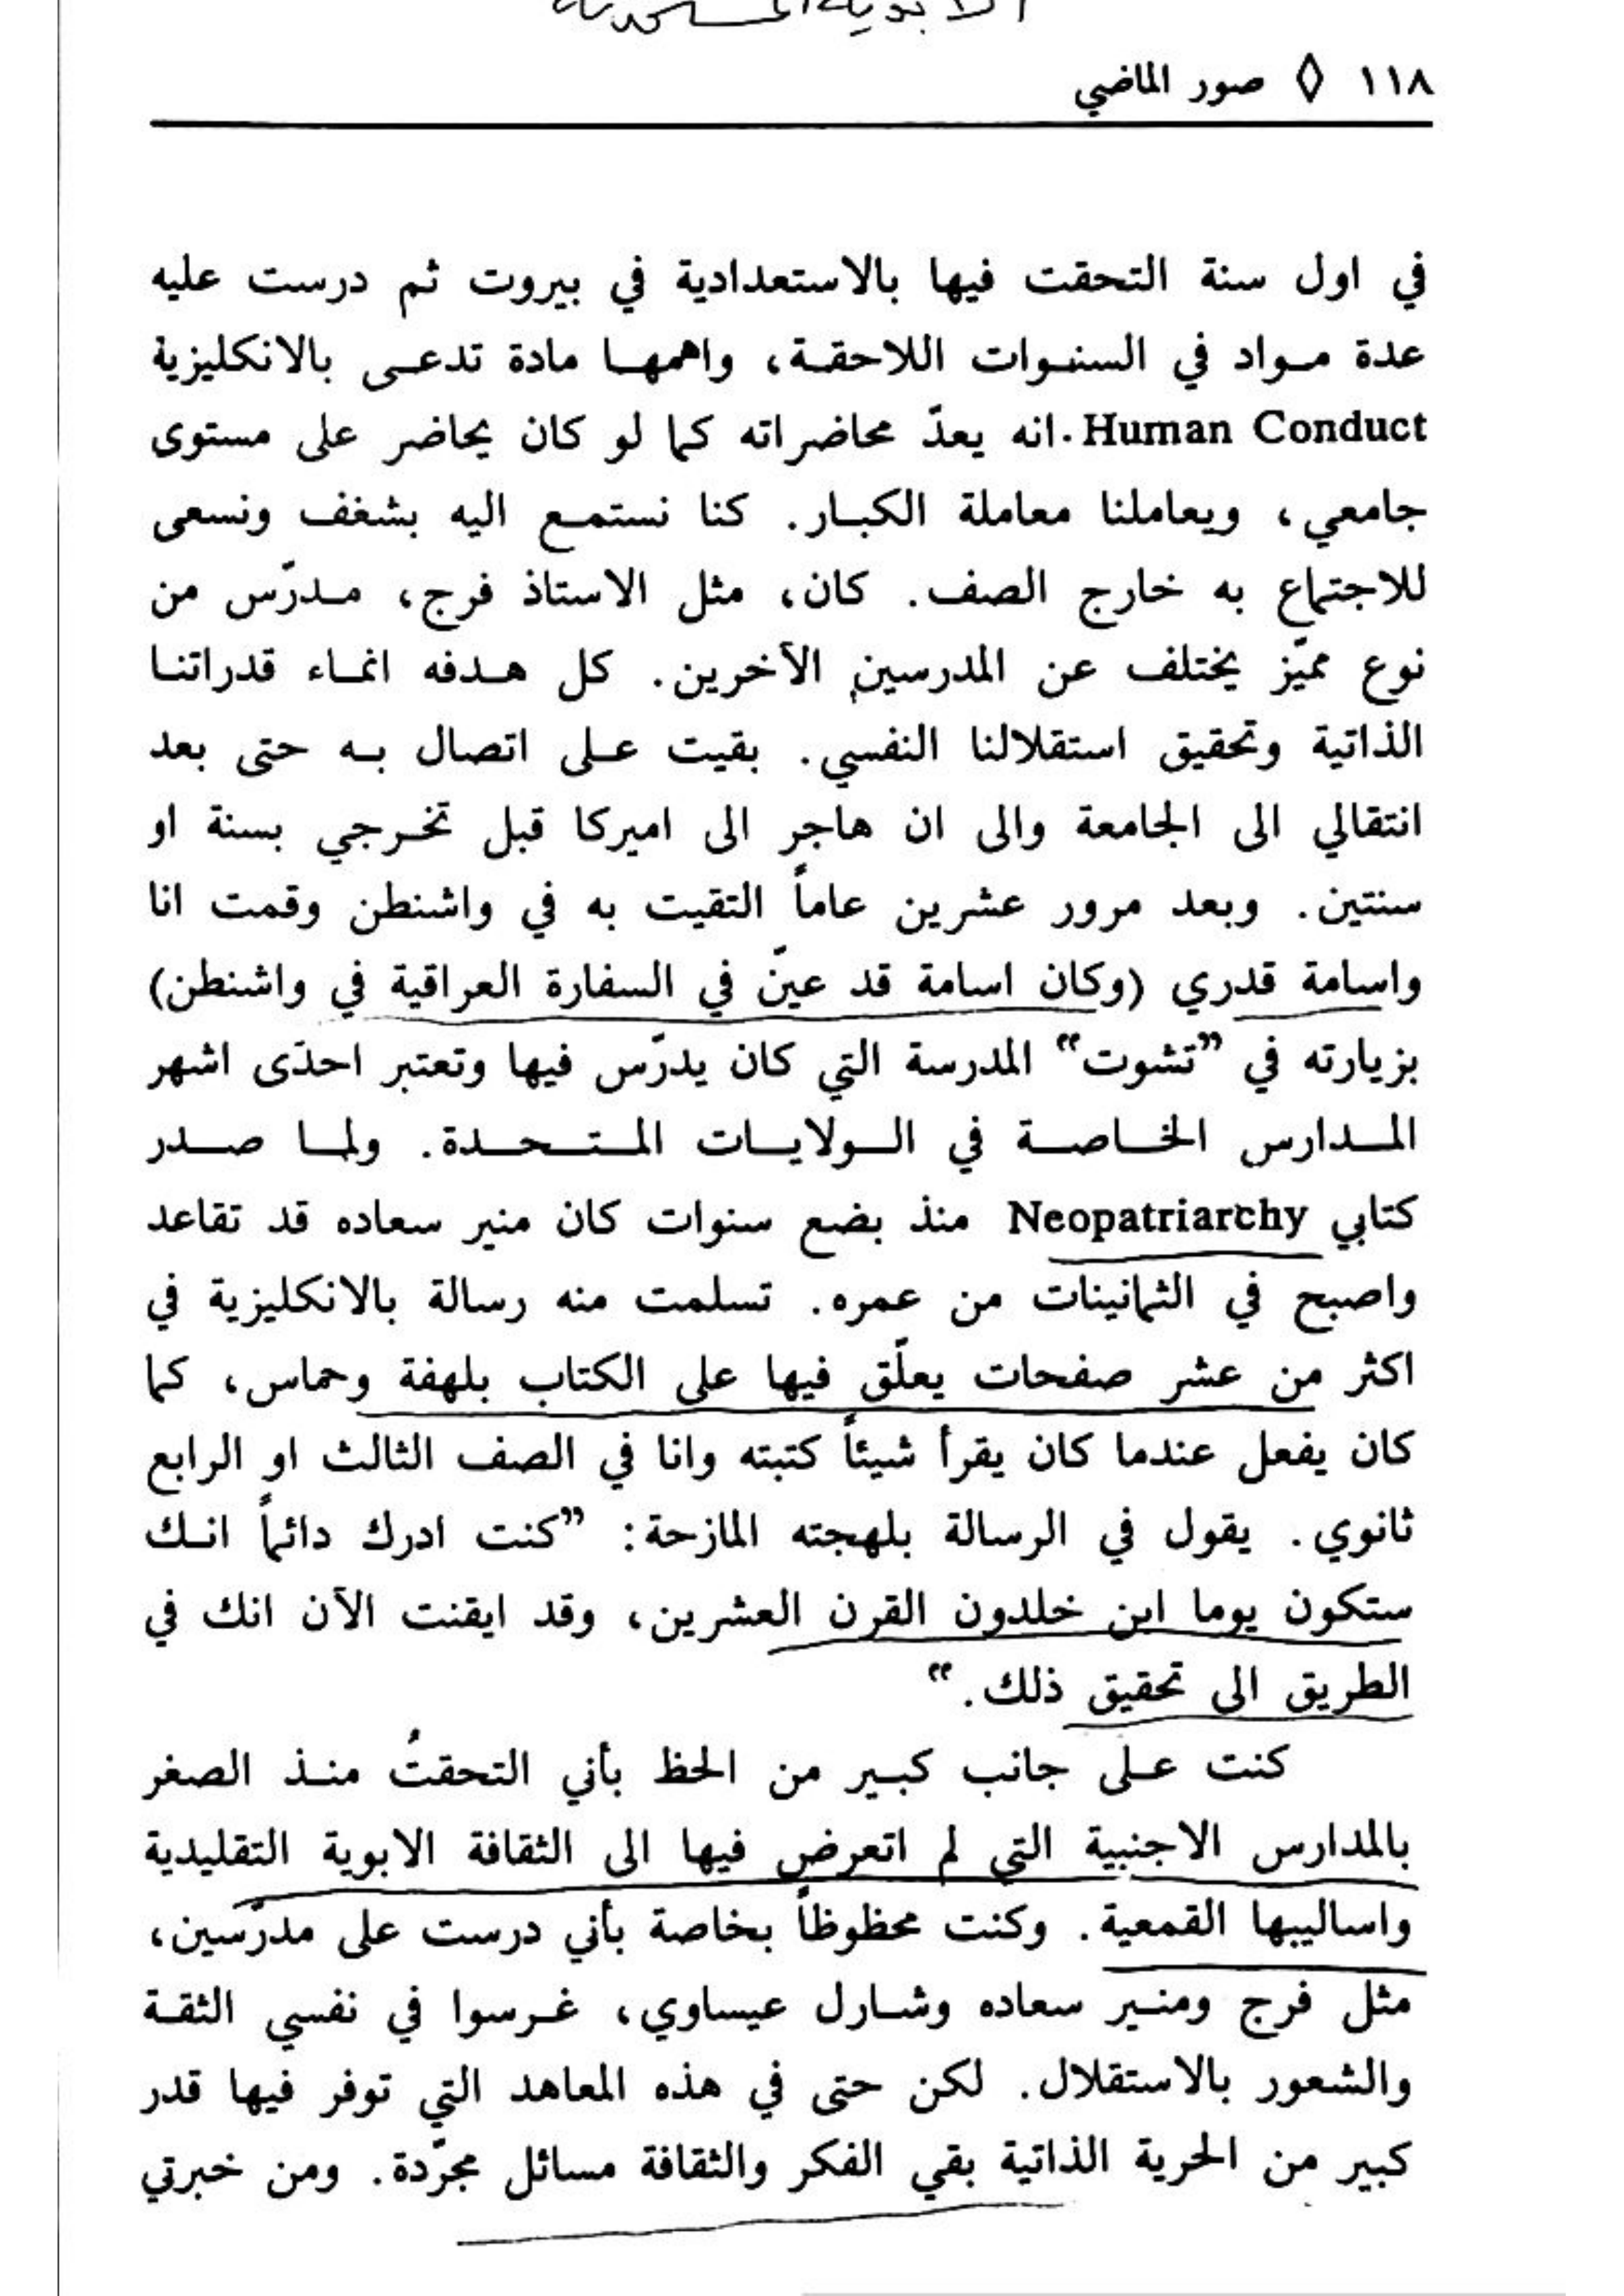 ١١٨ ◊ صور الماضي
في اول سنة التحقت فيها بالاستعدادية في بيروت ثم درست عليه
عدة مواد في السنوات اللاحقة، واهمها مادة تدعى بالانكليزية
Human Conduct. انه يعدّ محاضراته كما لو كان يحاضر على مستوى
جامعي، ويعاملنا معاملة الكبار. كنا نستمع اليه بشغف ونسعى
للاجتماع به خارج الصف. كان، مثل الاستاذ فرج، مدرّس من
نوع مميّز يختلف عن المدرسين الآخرين. كل هدفه انماء قدراتنا
الذاتية وتحقيق استقلالنا النفسي. بقيت على اتصال به حتى بعد
انتقالي الى الجامعة والى ان هاجر الى اميركا قبل تخرجي بسنة او
سنتين. وبعد مرور عشرين عاماً التقيت به في واشنطن وقمت انا
واسامة قدري (وكان اسامة قد عيّن في السفارة العراقية في واشنطن)
بزيارته في ”تشوت“ المدرسة التي كان يدرّس فيها وتعتبر احدى اشهر
المدارس الخاصة في الولايات المتحدة. ولما صدر
كتابي Neopatriarchy منذ بضع سنوات كان منير سعاده قد تقاعد
واصبح في الثمانينات من عمره. تسلمت منه رسالة بالانكليزية في
اكثر من عشر صفحات يعلّق فيها على الكتاب بلهفة وحماس، كما
كان يفعل عندما كان يقرأ شيئاً كتبته وانا في الصف الثالث او الرابع
ثانوي. يقول في الرسالة بلهجته المازحة: ”كنت ادرك دائماً انك
ستكون يوما ابن خلدون القرن العشرين، وقد ايقنت الآن انك في
الطريق الى تحقيق ذلك.“
كنت على جانب كبير من الحظ بأني التحقتُ منذ الصغر
بالمدارس الاجنبية التي لم اتعرض فيها الى الثقافة الابوية التقليدية
واساليبها القمعية. وكنت محظوظاً بخاصة بأني درست على مدرّسين،
مثل فرج ومنير سعاده وشارل عيساوي، غرسوا في نفسي الثقة
والشعور بالاستقلال. لكن حتى في هذه المعاهد التي توفر فيها قدر
كبير من الحرية الذاتية بقي الفكر والثقافة مسائل مجرّدة. ومن خبرتي